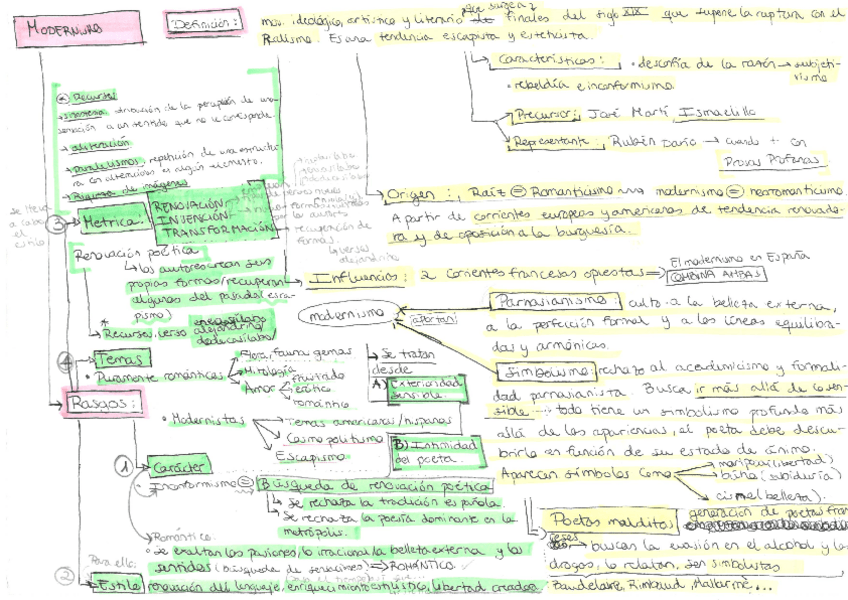 MODERNISMO
Definición:
mov. ideológico, artístico y literario que surge a finales del siglo XIX que supone la ruptura con el
Realismo. Es una tendencia escapista y esteticista.
Características: • desconfía de la razón → subjeti-
vismo
• rebeldía e inconformismo
Precursor: José Martí, Ismaelillo
Representante: Rubén Darío → cuando + con
Prosas Profanas
* Recursos
→ sinestesia atribución de la percepción de una
sensación a un sentido que no le corresponde.
→ aliteración
→ paralelismos, repetición de una estructu
ra con alteraciones en algún elemento.
→ Riqueza de imágenes
se lleva
a cabo
el
estilo
③ Métrica:
RENOVACIÓN
INVENCIÓN
TRANSFORMACIÓN
recuperación de
formas.
Origen: Raíz = Romanticismo modernismo = neoromanticismo
A partir de corrientes europeas y americanas de tendencia renovado
ra y de oposición a la burguesía.
Renovación poética
↳ los autores crean sus
propias formas/recuperan
algunas del pasado (esca-
pismo)
* Recursos, verso alejandrino
dodecasílabo
Influencias: 2 corrientes francesas opuestas ⇒
El modernismo en España
COMBINA AMBAS
modernismo
(aportan)
Parnasianismo: culto a la belleza externa,
a la perfección formal y a las líneas equilibra-
das y armónicas.
Simbolismo: rechazo al academicismo y formali-
dad parnasianista. Busca ir más allá de lo sen-
sible ... todo tiene un simbolismo profundo más
allá de las apariencias, el poeta debe descu-
brirlo en función de su estado de ánimo.
Aparecen símbolos como
mariposa (libertad)
búho (sabiduría)
cisne (belleza).
④ Temas
• Puramente románticos
Flora, fauna, gemas
Mitología
Amor
frustrado
erótico
romántico
→ Se tratan
desde
A) Exterioridad
sensible.
B) Intimidad
del poeta.
Rasgos:
• Modernistas
Temas americanos/hispanos
Cosmopolitismo
Escapismo
① Carácter
• Inconformismo = Búsqueda de renovación poética
↳ Se rechaza la tradición española.
↳ Se rechaza la poesía dominante en la
metrópolis.
Romántico.
• se exaltan las pasiones, lo irracional, la belleza externa y los
sentidos (búsqueda de sensaciones) → ROMÁNTICO
Para ello:
② Estilo renovación del lenguaje, enriquecimiento estilístico, libertad creadora
Poetas malditos: generación de poetas fran
ceses
→ buscan la evasión en el alcohol y las
drogas, lo relatan, son simbolistas
Baudelaire, Rimbaud, Mallarmé, ...